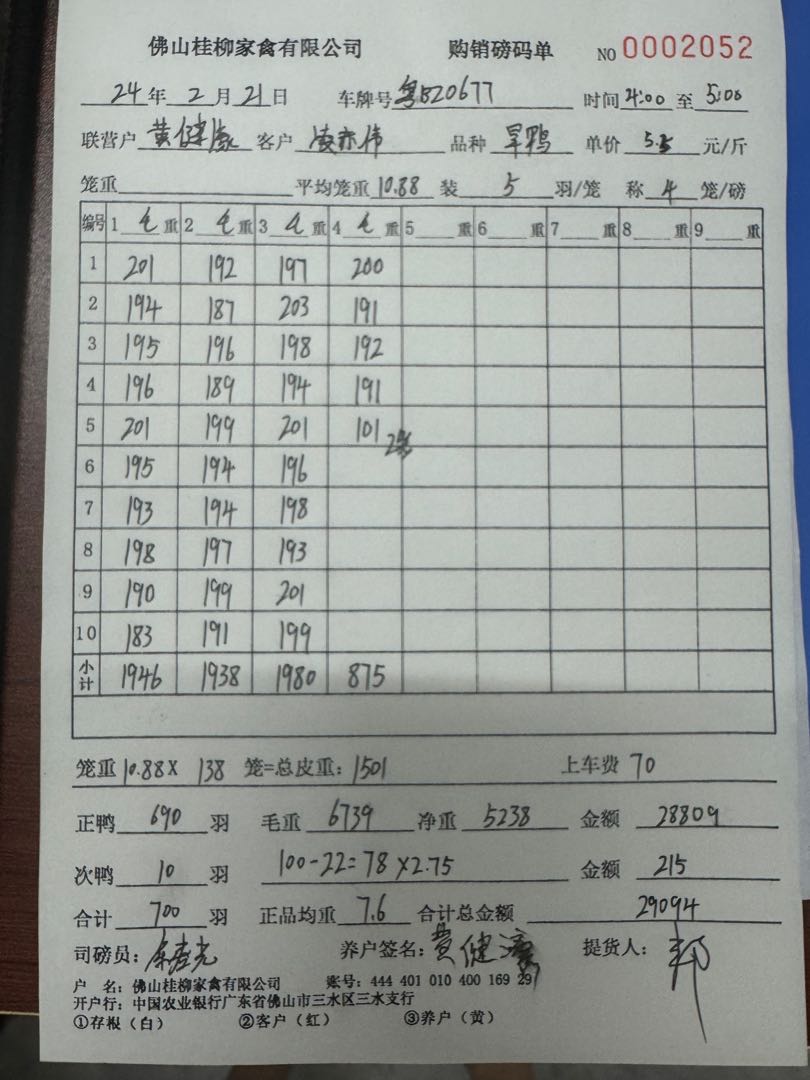 佛山桂柳家禽有限公司 购销磅码单 NO 0002052
24年 2月 21日 车牌号 粤B20677 时间 4:00 至 5:00
联营户 黄健濠 客户 凌亦伟 品种 旱鸭 单价 5.5 元/斤
笼重 平均笼重 10.88 装 5 羽/笼 称 4 笼/磅
编号 1 毛重 2 毛重 3 毛重 4 毛重 5 重 6 重 7 重 8 重 9 重
1 201 192 197 200
2 194 187 203 191
3 195 196 198 192
4 196 189 194 191
5 201 199 201 101 2笼
6 195 194 196
7 193 194 198
8 198 197 193
9 190 199 201
10 183 191 199
小计 1946 1938 1980 875
笼重 10.88 X 138 笼=总皮重: 1501 上车费 70
正鸭 690 羽 毛重 6739 净重 5238 金额 28809
次鸭 10 羽 100-22=78 X 2.75 金额 215
合计 700 羽 正品均重 7.6 合计总金额 29094
司磅员: 养户签名: 黄健濠 提货人: 邦
户 名: 佛山桂柳家禽有限公司 账号: 444 401 010 400 169 29
开户行: 中国农业银行广东省佛山市三水区三水支行
①存根（白） ②客户（红） ③养户（黄）